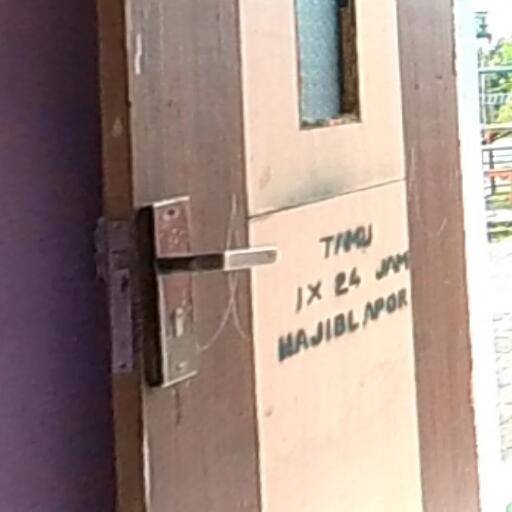 TAMU
1X 24 JAM
WAJIB LAPOR